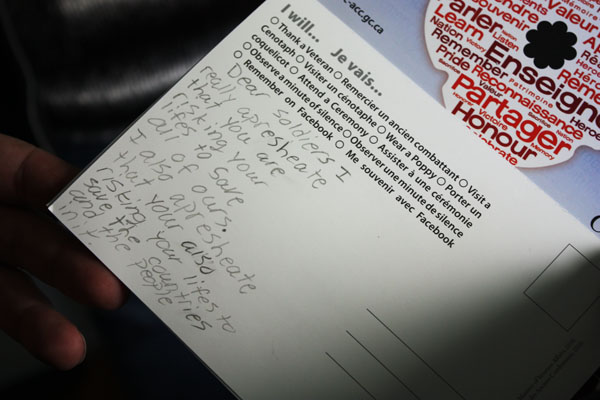 c-acc.gc.ca
I will... Je vais...
○ Thank a Veteran ○ Remercier un ancien combattant ○ Visit a
Cenotaph ○ Visiter un cénotaphe ○ Wear a Poppy ○ Porter un
coquelicot ○ Attend a Ceremony ○ Assister à une cérémonie
○ Observe a minute of silence ○ Observer une minute de silence
○ Remember on Facebook ○ Me souvenir avec Facebook
Dear soldiers I
really apresheate
that you are
risking your
lifes to save
all of ours.
I also apresheate
that your also
risking your lifes to
save the countries
and the people
in it.
Souvenir
arler
Learn
Listen
Nation
Enseigne
Remember
patrimoine
Pride
Reconnaissance
Valeur
Partager
Victoire
Honour